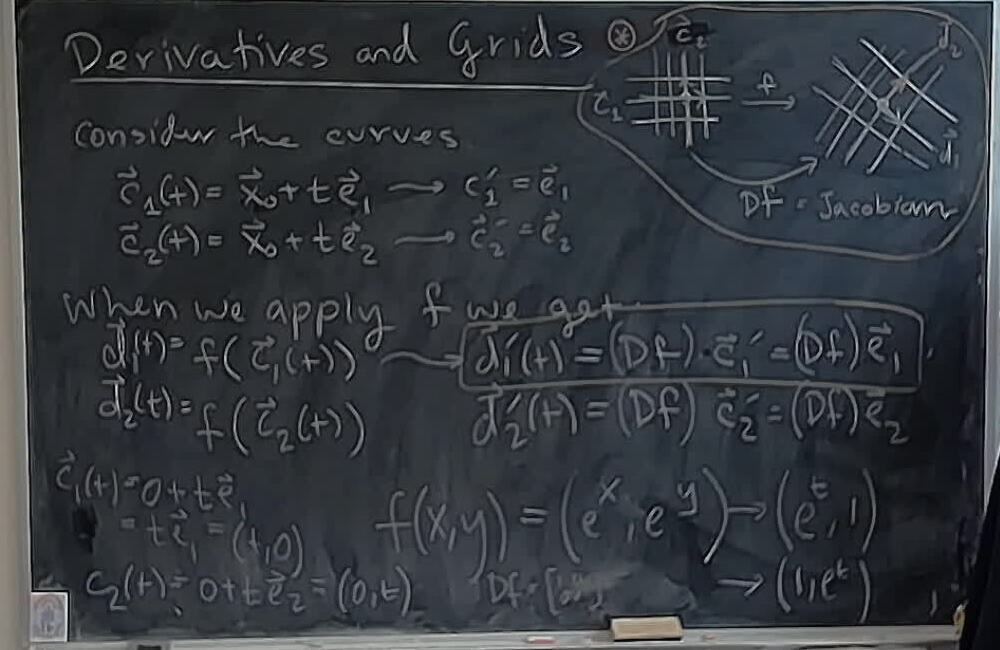 Derivatives and Grids ⊛
c⃗₂
c⃗₁ f⟶ d⃗₂
d⃗₁
Df = Jacobian
consider the curves
c⃗₁(t) = x⃗₀ + t e⃗₁ ⟶ c⃗₁′ = e⃗₁
c⃗₂(t) = x⃗₀ + t e⃗₂ ⟶ c⃗₂′ = e⃗₂
When we apply f we get
d⃗₁(t) = f(c⃗₁(t)) ⟶ d⃗₁′(t) = (Df)·c⃗₁′ = (Df)e⃗₁
d⃗₂(t) = f(c⃗₂(t)) d⃗₂′(t) = (Df) c⃗₂′ = (Df)e⃗₂
c⃗₁(t) = 0 + t e⃗₁
= t e⃗₁ = (t,0)
c₂(t) = 0 + t e⃗₂ = (0,t)
f(x,y) = (eˣ, eʸ) → (eᵗ, 1)
Df = → (1, eᵗ)